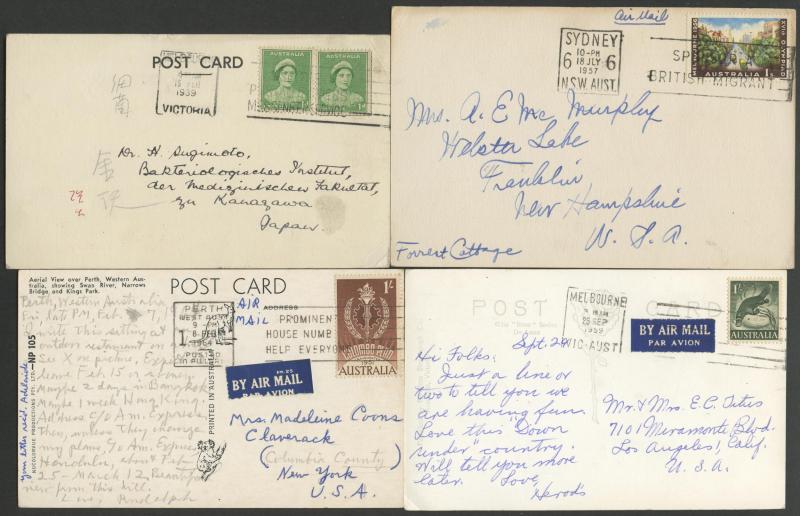 POST CARD
AUSTRALIA
AUSTRALIA
1939
VICTORIA
Dr. H. Sugimoto,
Bakteriologisches Institut,
der Medizinischen Fakultät,
zu Kanazawa
Japan
Air Mail
SYDNEY
10-PM
6 18 JLY 6
1957
N.S.W. AUST.
BRITISH MIGRANT
AUSTRALIA 1/-
Mrs. A. E. Mc Murphy
Webster Lake
Franklin
New Hampshire
U. S. A.
Forrest Cottage
Aerial View over Perth, Western Aus-
tralia, showing Swan River, Narrows
Bridge and Kings Park.
POST CARD
AIR
MAIL
ADDRESS
PERTH
WEST AUST
9-PM
8 FEB
1964
PROMINENT
HOUSE NUMB
HELP EVERYON
1/-
1961
AUSTRALIA
BY AIR MAIL
PAR AVION
Perth, Western Australia
Fri. late PM, Feb 7,
write this sitting at
outdoor restaurant on
leave Feb 15 or
Maybe 2 days in Bangkok
Maybe 1 week Hong Kong.
Address c/o Am. Express
then, unless they
my plans, c/o Am. Express
Honolulu, about Feb
25 - March 12. Beautiful
view from this hill.
Love, Rudolph
Your letter recd. Adelaide
NUCOLORVUE PRODUCTIONS PTY. LTD.-NP 105
PRINTED IN AUSTRALIA
Mrs. Madeline Coons
Claverack
(Columbia County)
New York
U.S.A.
POST CARD
MELBOURNE
25 SEP
1959
VIC-AUST
BY AIR MAIL
PAR AVION
1/-
AUSTRALIA
Sept. 24
Hi Folks:
Just a line or
two to tell you we
are having fun.
Love this "Down
under" country.
Will tell you more
later. Love,
Herods
Mr. & Mrs. E. C. Titus
7101 Miramonte Blvd.
Los Angeles 1, Calif.
U. S. A.